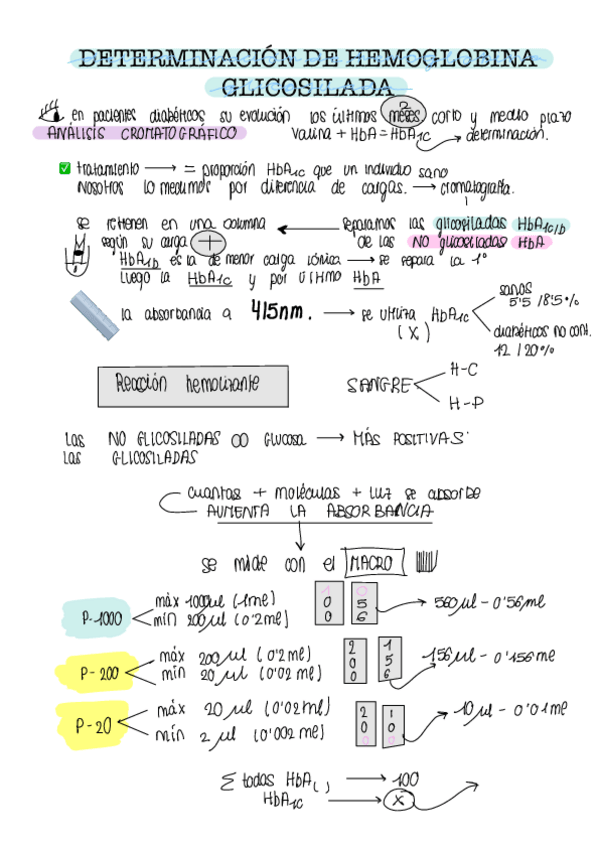 DETERMINACIÓN DE HEMOGLOBINA
GLICOSILADA
en pacientes diabéticos su evolución los últimos 2 meses corto y medio plazo
ANÁLISIS CROMATOGRÁFICO valina + HbA = HbA1c → determinación.
tratamiento → = proporción HbA1c que un individuo sano
Nosotros lo medimos por diferencia de cargas. → cromatografía.
se retienen en una columna ← separamos las glicosiladas HbA1c/b
según su carga + de las NO glicosiladas HbA
HbA1b es la de menor carga iónica → se separa la 1º
luego la HbA1c y por último HbA
sanos
5'5 / 8'5 %
la absorbancia a 415nm. → se utiliza HbA1c
(X)
diabéticos no cont.
12 / 20%
Reacción hemolizante
SANGRE
H-C
H-P
Las NO GLICOSILADAS Glucosa → MÁS POSITIVAS
Las GLICOSILADAS
cuantas + moléculas + luz se absorbe
AUMENTA LA ABSORBANCIA
se mide con el MACRO
P-1000
máx 1000µl (1ml)
mín 200µl (0'2ml)
1 0 0
0 5 6
→ 560µl - 0'56ml
P-200
máx 200µl (0'2ml)
mín 20µl (0'02ml)
2 0 0
1 5 6
156µl - 0'156ml
P-20
máx 20µl (0'02ml)
mín 2µl (0'002ml)
2 0 0
1 0 0
10µl - 0'01ml
Σ todas HbA( ) → 100
HbA1c → X